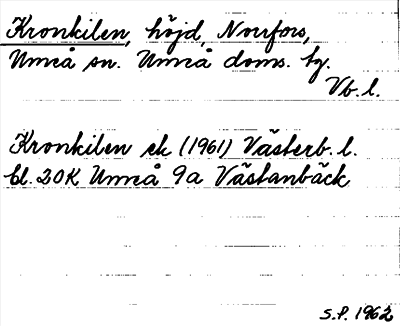 Kronkilen, höjd, Norrfors,
Umeå sn. Umeå doms. tg.
Vb. l.
Kronkilen ek (1961) Västerb. l.
bl. 20K Umeå 9a Västanbäck
S.P. 1962